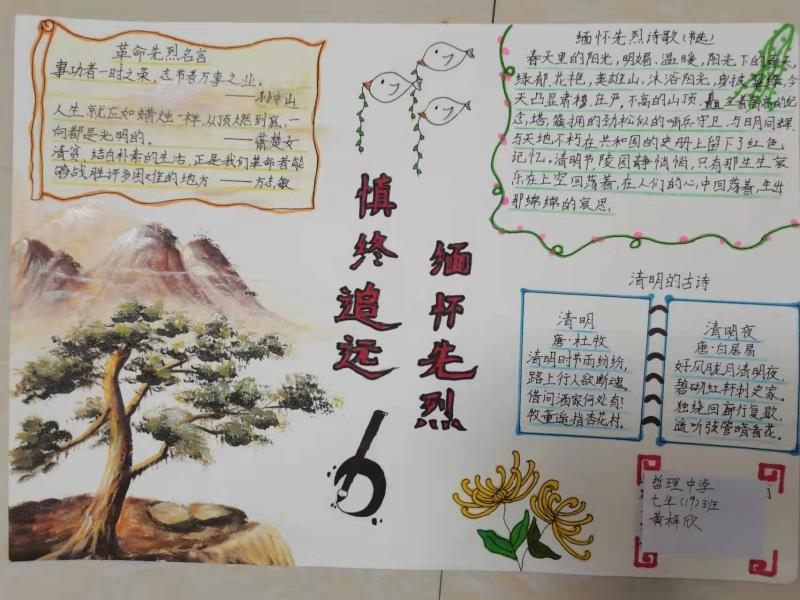 革命先烈名言
事功者一时之荣，志节者万事之业。
——孙中山
人生就应如蜡烛一样，从顶燃到底，一
向都是光明的。——萧楚女
清贫，结白朴素的生活，正是我们革命者能
够战胜许多困难的地方——方志敏
慎终追远
缅怀先烈
缅怀先烈诗歌（节选）
春天里的阳光，明媚、温暖，阳光下的春天，
绿郁、花艳，英雄山，沐浴阳光，身披翠绿，今
天凸显肃穆、庄严，不高的山顶，矗立着高高的纪
念塔，簇拥的劲松似的哨兵守卫，与日月同辉，
与天地不朽在共和国的史册上留下了红色
记忆。清明节陵园静悄悄，只有那生生哀
乐在上空回荡着，在人们的心中回荡着，生出
那绵绵的哀思
清明的古诗
清明
唐·杜牧
清明时节雨纷纷，
路上行人欲断魂。
借问酒家何处有？
牧童遥指杏花村。
清明夜
唐·白居易
好风胧月清明夜，
碧砌红轩刺史家。
独绕回廊行复歇，
遥听弦管暗看花。
哲理中学
七年（19）班
黄梓欣